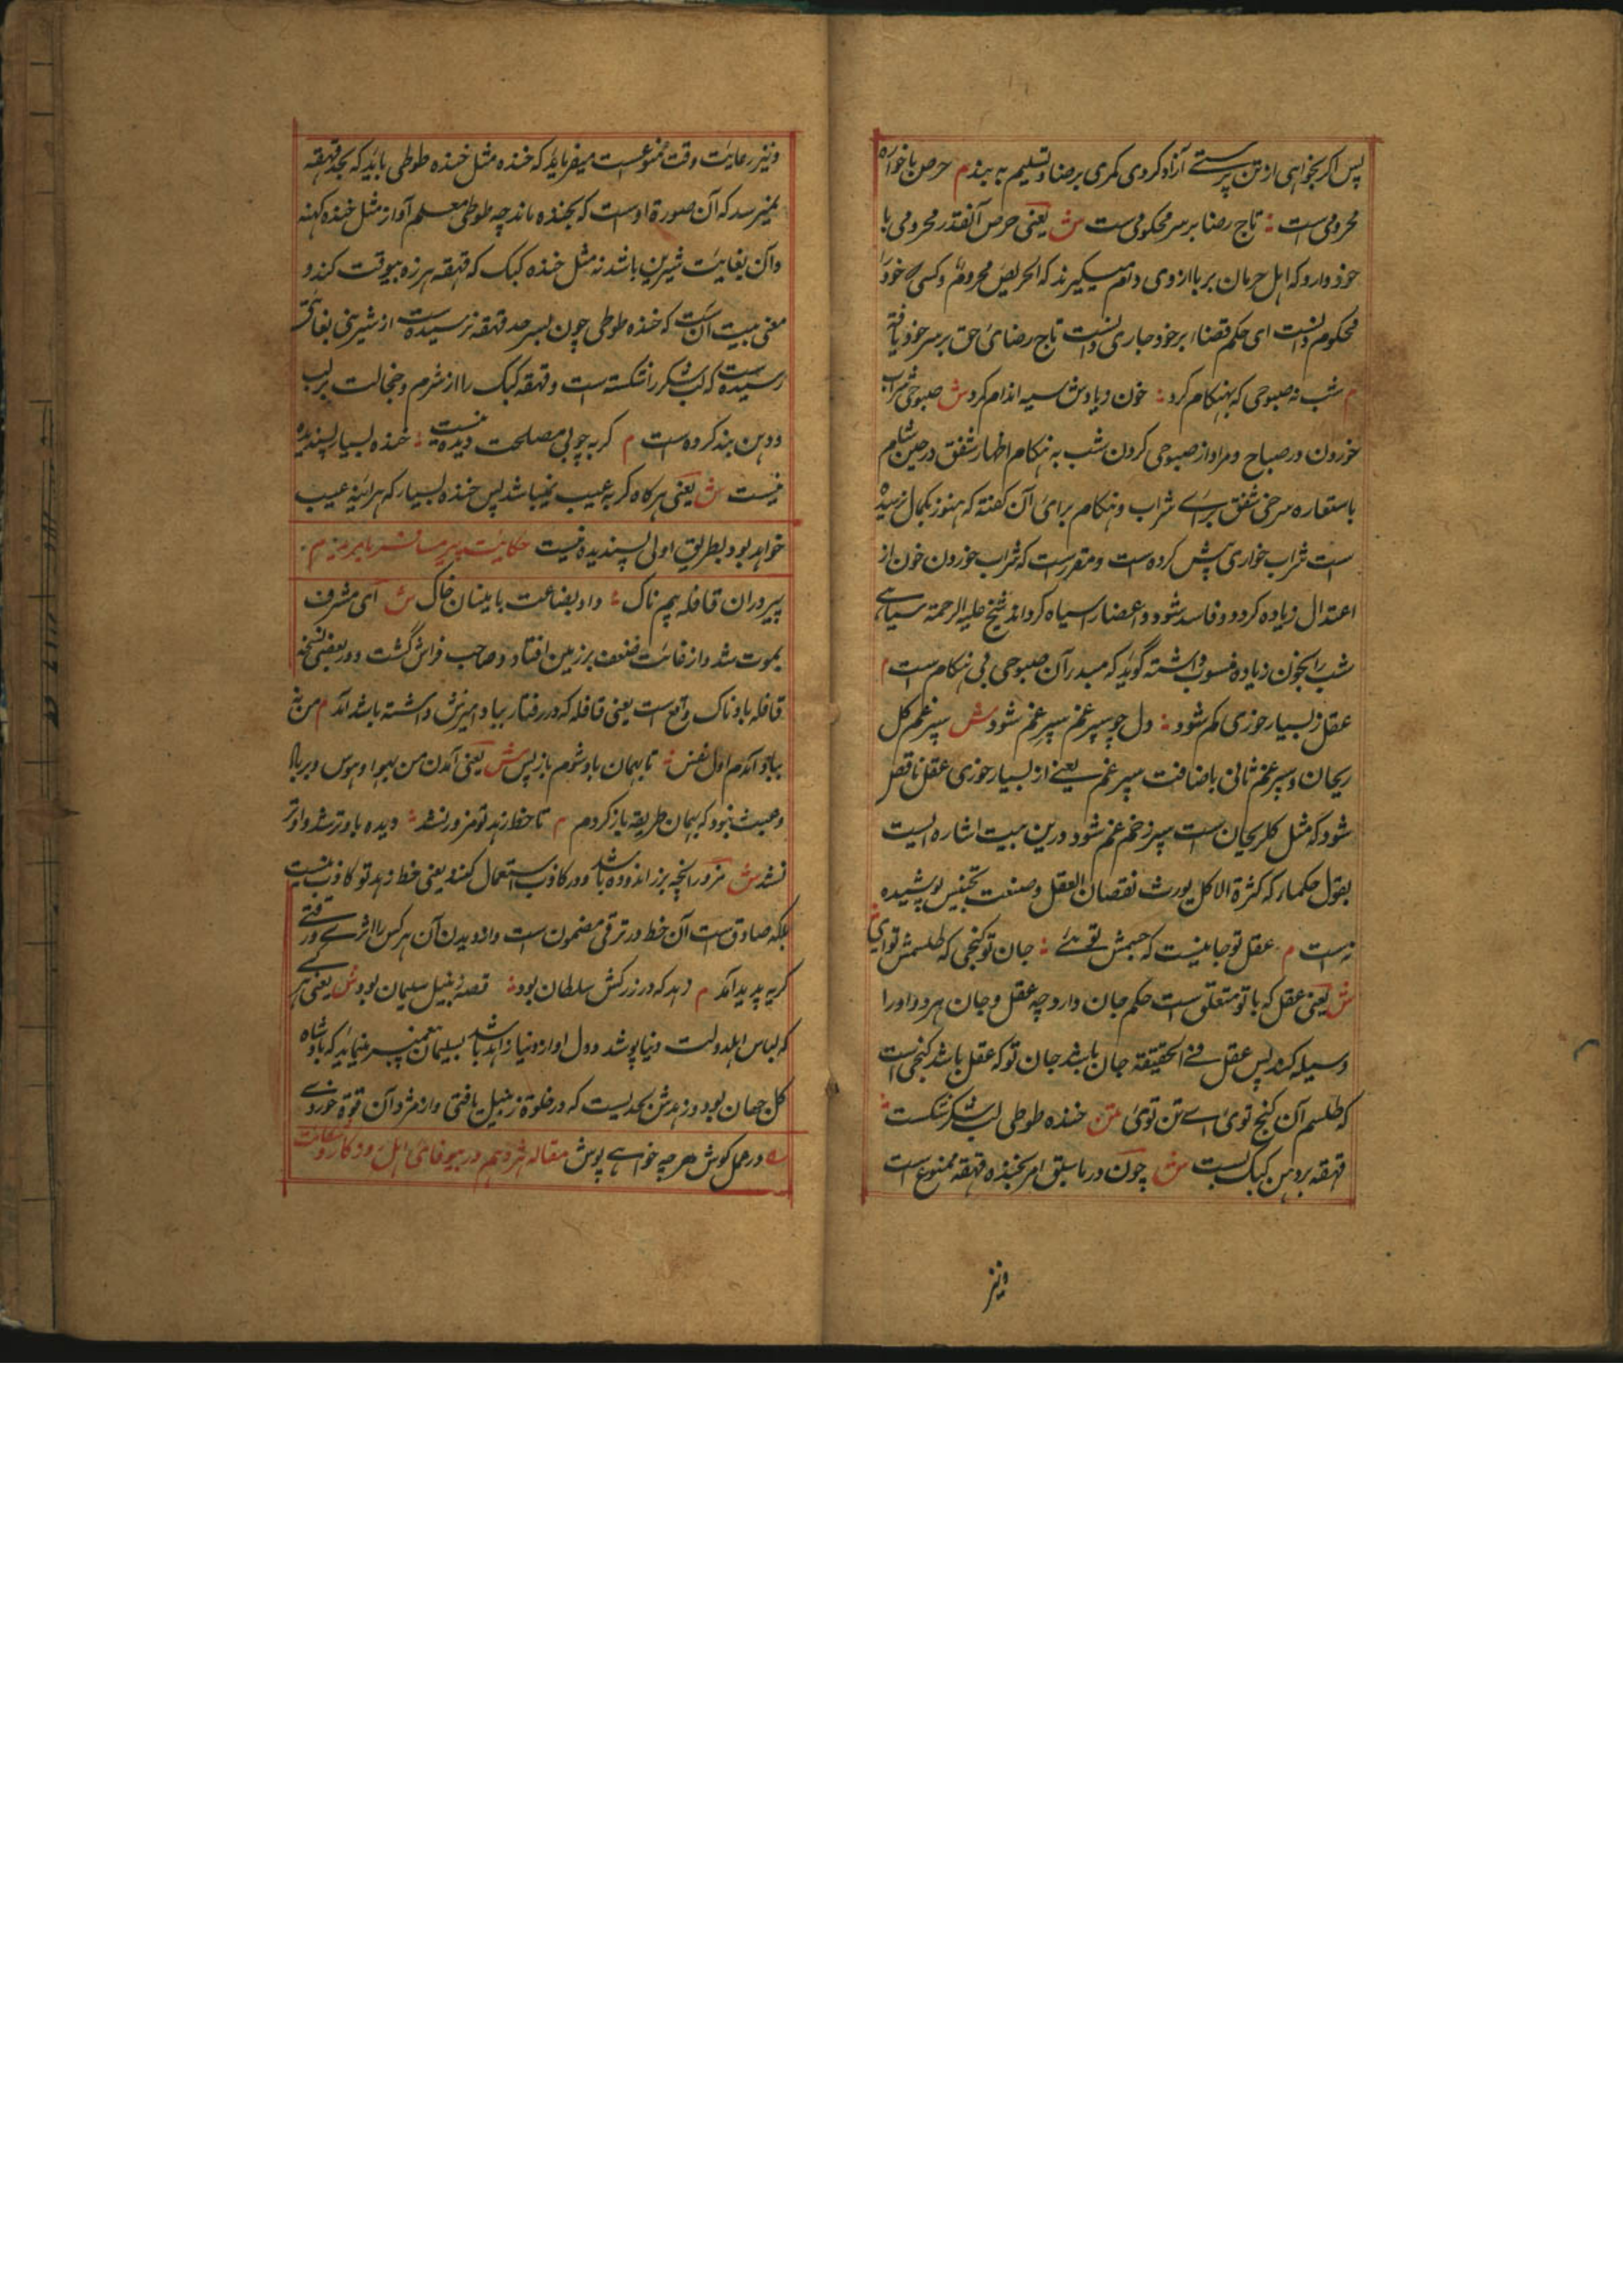 پس اگر بخواهی از تن پرستے آزاد کردی کمری برضا و تسلیم به بند م حرص با خواره
محرومی است ؛ تاج رضا بر سر محکومی است ش یعنی حرص آنقدر محرومی با
خود دارد که اهل حرمان بر با از وی دام میگیرند که الحریص محروم و کسی که خود را
محکوم دانست ای حکم قضاء بر خود جاری دانست تاج رضائ حق بر سر خود یافته
م شب نه صبوحی که بهنکام کرد ؛ خون زیادش سیه اندام کرد ش صبوحی شراب
خوردن در صباح و مراد از صبوحی کردن شب به هنکام اظهار شفق در حین شام
باستعاره سرخی شفق برائے شراب و هنکام برائ آن کفته که هنوز بکمال نرسیده
است شراب خواری پیش کرده است و مقرر است که شراب خوردن خون از
اعتدال زیاده کردد و فاسد شود و اعضا را سیاه کرداند شیخ علیه الرحمة سیاهی
شب را بخون زیاده منسوب داشته گوید که مبدر آن صبوحی بی هنکام است م
عقل ز بسیار خوری کم شود ؛ دل چو سپر غم سپر غم شود ش سپر غم کل
ریحان و سپر غم ثانی باضافت سپر غم یعنے از بسیار خوری عقل ناقص
شود که مثل کل ریحان است سپر زخم غم شود درین بیت اشاره ایست
بقول حکما که کثرة الاکل یورث نقصان العقل و صنعت تجنیس پوشیده
نه است م عقل تو جانیست که جسمش توئے ؛ جان تو کنجی که طلسمش توای
ش یعنی عقل که با تو متعلق است حکم جان دارد چه عقل و جان هر دو او را
وسیله کند پس عقل فے الحقیقة جان باشد جان تو که عقل باشد کنجی است
که طلسم آن کنج توئ اے تن توئ متن خنده طوطی لب شکر شکست ؛
قهقهه بر دهن کبک بست ش چون در ما سبق امر بخنده قهقهه ممنوع است
و نیز
و نیز رعایت وقت ممنوعست میفرماید که خنده مثل خنده طوطی باید که بحد قهقهه
نمیرسد که آن صورة اوست که بخنده ماند چه طوطی معلم آواز مثل خنده کند
و آن بغایت شیرین باشد نه مثل خنده کبک که قهقهه هرزه بیوقت کند و
معنی بیت آنست که خنده طوطی چون بسرحد قهقهه نرسیده است از شیرینی بغایتی
رسیده است که لب شکر را شکسته است و قهقهه کبک را از شرم و خجالت بر لب
و دهن بند کرده است م کریه چو بی مصلحت دیده نیست ؛ خنده بسیار پسندیده
نیست ش یعنی هرکاه کریه عیب نمیباشد پس خنده بسیار که هر آئینه عیب
خواهد بود بطریق اولی پسندیده نیست حکایت پیر مسافر با مرید م
پیر دران قافله بیم ناک ؛ داد بضاعت بامینان خاک ش ای مشرف
بموت شد و از غایت ضعف بر زمین افتاد و صاحب فراش گشت و در بعضی نسخه
قافله باد ناک واقع است یعنی قافله که در رفتار بباد امیزش داشته باشد آمد م من نه
بباد آمدم اول نفس ؛ تا بهمان باد شوم باز پس ش یعنی آمدن من بهوا و هوس و برباد
و عبث نبود که بهمان طریقه باز کردم م تا خط زهد تو مزور نشد ؛ دیده باو تر شد و او تر
نشد ش مزور انچه بزر اندوده باشد و در کاذب استعمال کنند یعنی خط زهد تو کاذب نیست
بلکه صادق است آن خط در ترقی مضمون است و از دیدن آن هر کس را اثرے و رقتے
کریه پدید آمد م زهد که در زرکش سلطان بود ؛ قصه زنبیل سلیمان بود ش یعنی هر کے
که لباس اهل دولت دنیا پوشد و دل او از دنیا زاهد باشد بسلیمان پیغمبر مینماید که بادشاه
کل جهان بود و زهدش بحدیست که در خلوة زنبیل یافتی و از مزد آن قوة خوردے
م در عمل کوش هر چه خواهے پوش مقاله شردهم در بیوفائ اهل روزکار